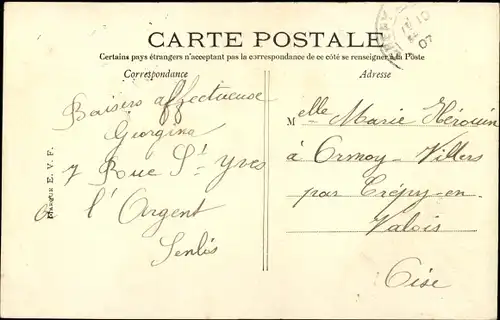 CARTE POSTALE
Certains pays étrangers n'acceptant pas la correspondance de ce côté se renseigner à la Poste
Correspondance
Adresse
Baisers affectueuse
Georgina
7 Roué St Yves
à l'Argent
Senlis
MARQUE E. V. F.
Melle Marie Hérouin
à Ormoy-Villers
par Crépy-en-
Valois
Oise
07